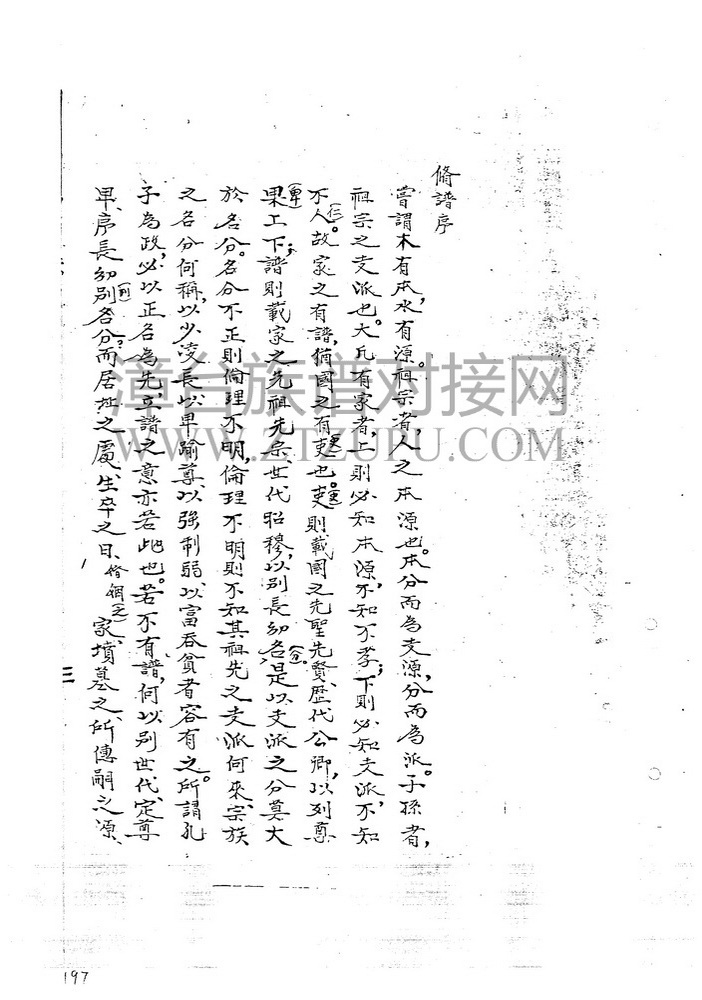 脩譜序
嘗謂木有本,水有源。祖宗者,人之本源也。本分而為支源,分而為派。子孫者,
祖宗之支派也。大凡有家者,上則必知本源,不知不孝;下則必知支派,不知
不人(仁)。故家之有譜,猶國之有吏(史)也。吏(史)則載國之先聖先賢、歷代公卿,以列尊
果(卑)上下;譜則載家之先祖先宗、世代昭穆,以別長幼名(分)是以支派之分莫大
於名分。名分不正則倫理不明,倫理不明則不知其祖先之支派何來、宗族
之名分何稱,以少凌長、以卑踰尊、以強制弱、以富吞貧者容有之。所謂孔
子為政,必以正名為先,立譜之意亦若此也。若不有譜,何以別世代、定尊
卑、序長幼、別(列)各分?而居址之處、生卒之日、脩個(之)家、墳墓之所、傳嗣之源、
三
197
漳台族谱对接网
WWW.ZTZUPU.COM